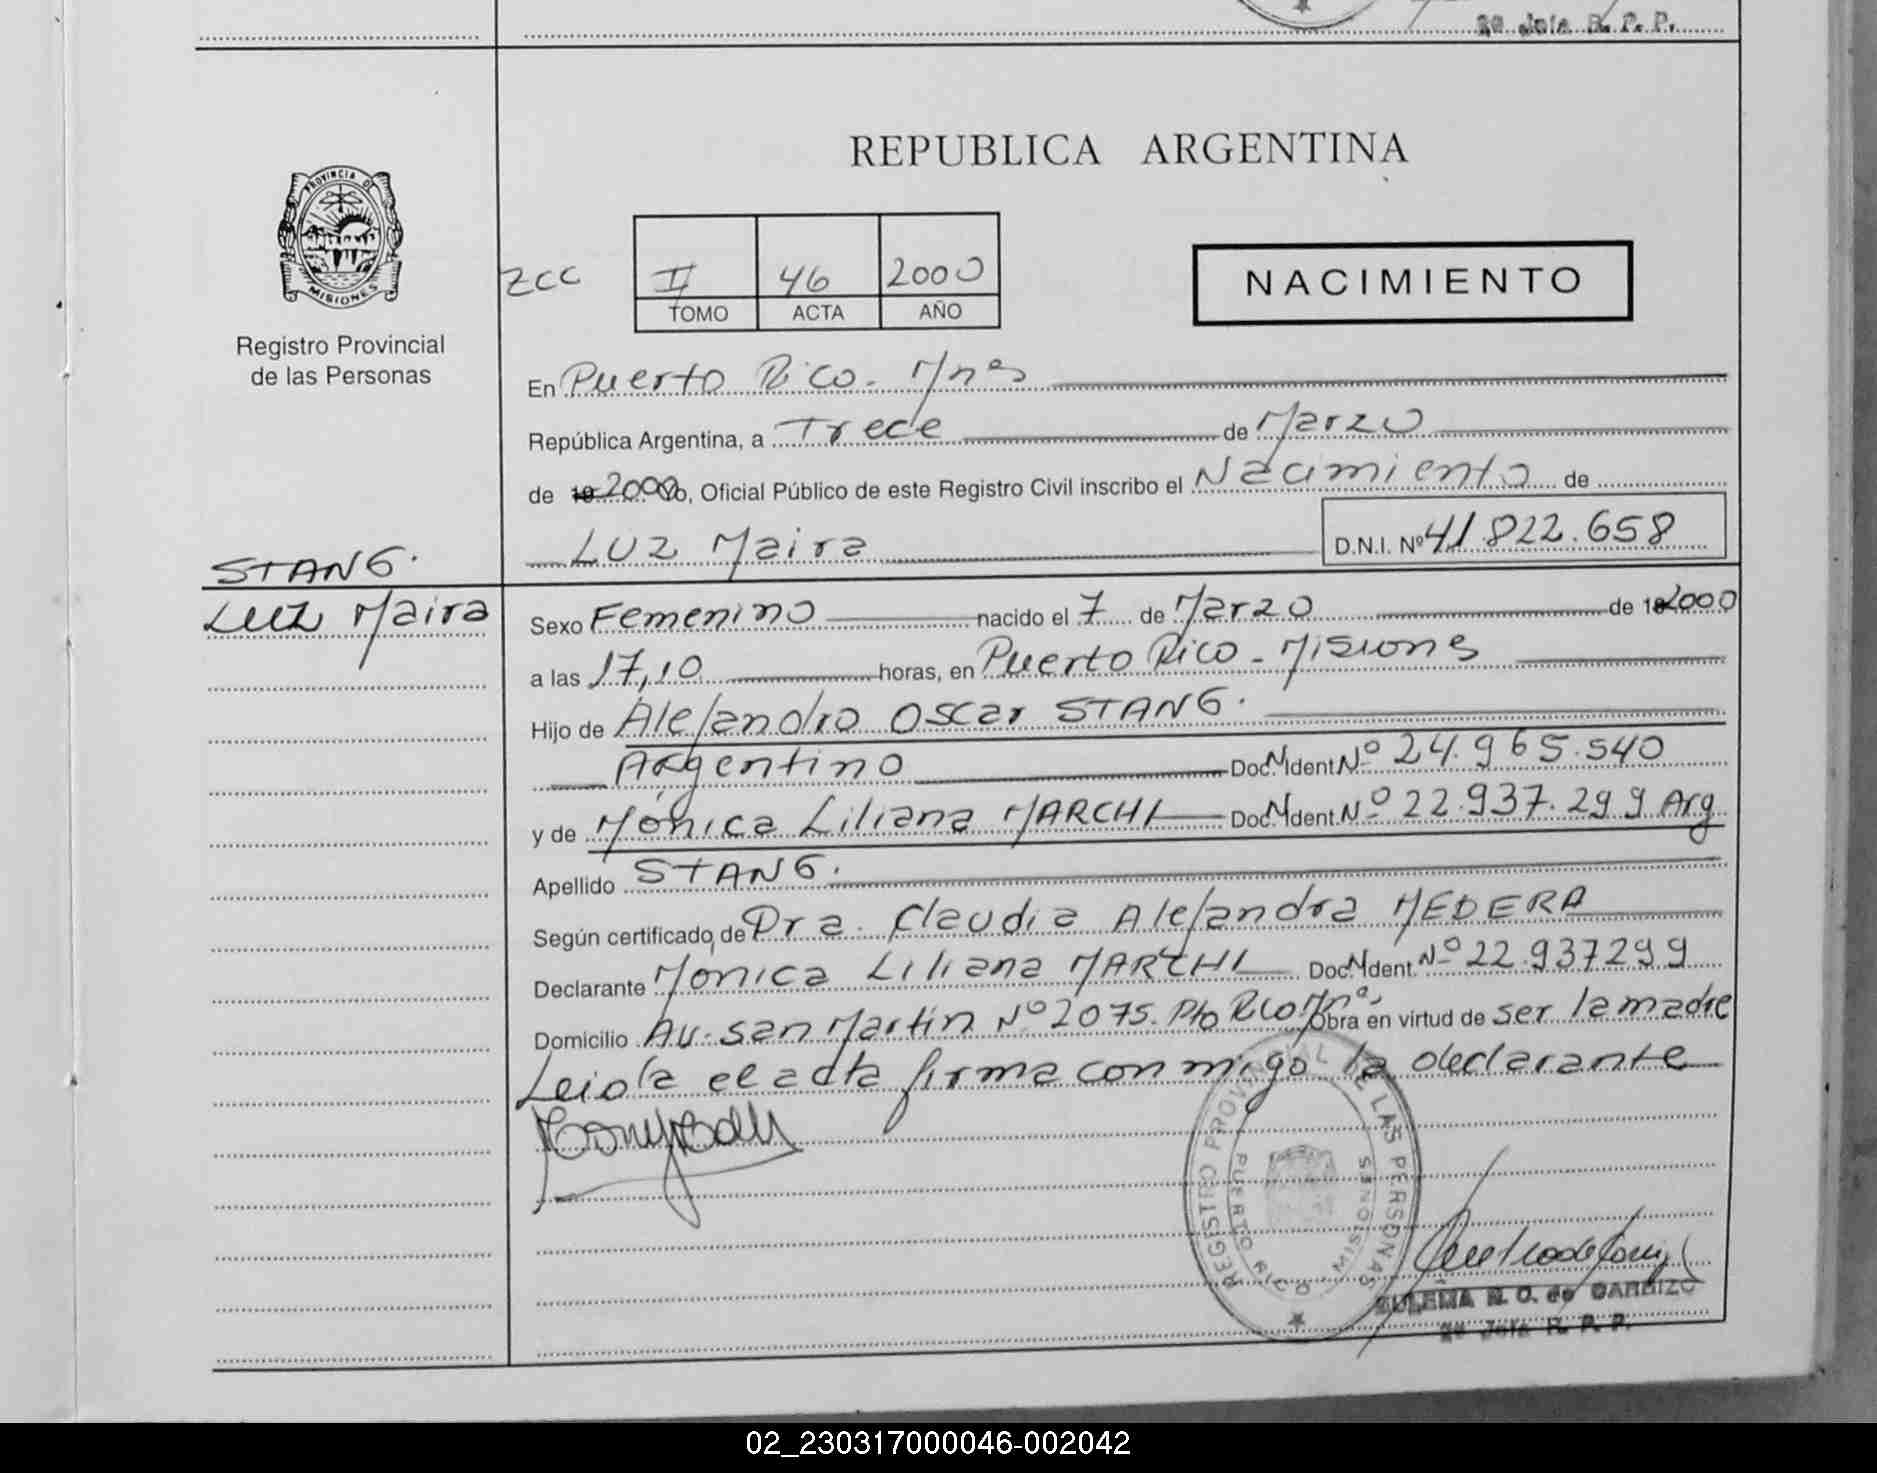 2º Jefa R. P. P.
REPUBLICA ARGENTINA
PROVINCIA DE
MISIONES
Registro Provincial
de las Personas
ZCC
II 46 2000
TOMO ACTA AÑO
NACIMIENTO
En Puerto Rico - Mnes
República Argentina, a Trece de Marzo
de 19 2000 yo, Oficial Público de este Registro Civil inscribo el Nacimiento de
Luz Maira D.N.I. Nº 41.822.658
STANG.
Luz Maira
Sexo Femenino nacido el 7 de Marzo de 19 2000
a las 17,10 horas, en Puerto Rico - Misiones
Hijo de Alejandro Oscar STANG.
Argentino Doc. N Ident. Nº 24.965.540
y de Mónica Liliana MARCHI Doc. N Ident. Nº 22.937.299 Arg
Apellido STANG.
Según certificado de Dra. Claudia Alejandra MEDERA
Declarante Monica Liliana MARCHI Doc. N Ident. Nº 22.937299
Domicilio Av. San Martin Nº 2075. Pto Rico Mnes. Obra en virtud de ser la madre
Leida el acta firma conmigo la declarante
REGISTRO PROVINCIAL DE LAS PERSONAS
PUERTO RICO - MISIONES
ZULEMA N. O. de GARRIZO
2º Jefa R. P. P.
02_230317000046-002042